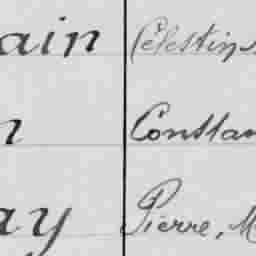 ain Célestin
n Constan
ay Pierre, M